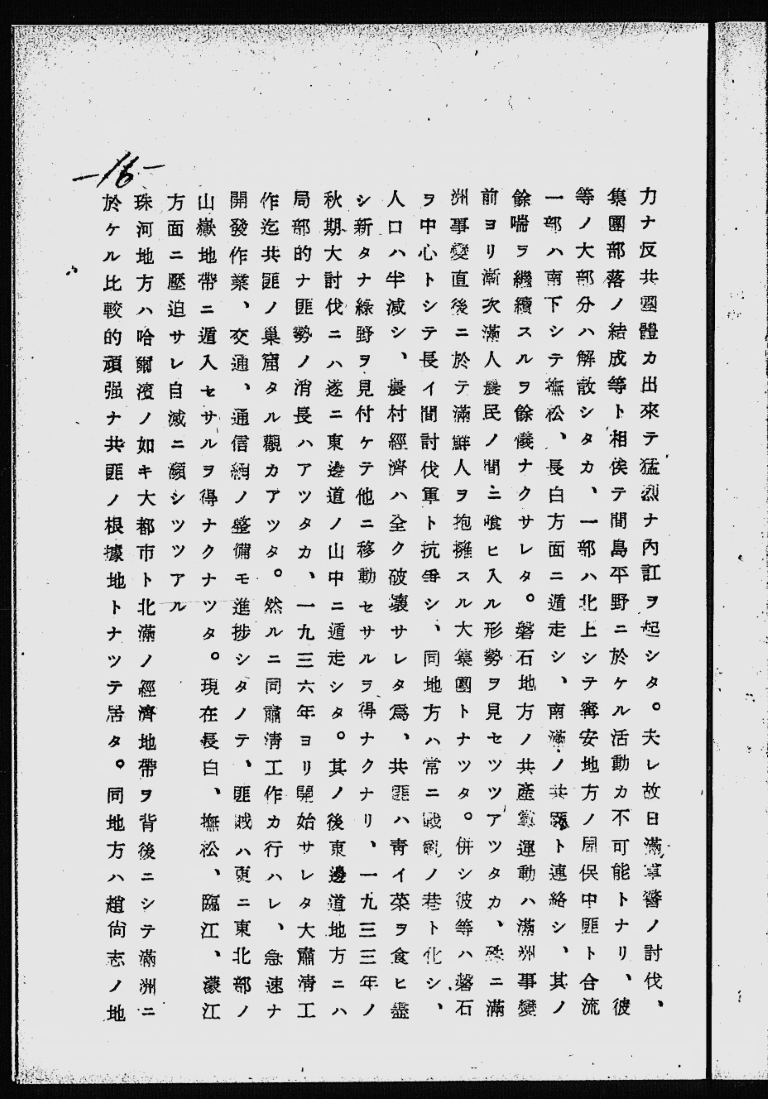 —16—
力ナ反共團體カ出來テ猛烈ナ內訌ヲ起シタ。夫レ故日滿軍警ノ討伐、
集團部落ノ結成等ト相俟テ間島平野ニ於ケル活動カ不可能トナリ、彼
等ノ大部分ハ解散シタカ、一部ハ北上シテ寗安地方ノ周保中匪ト合流
一部ハ南下シテ撫松、長白方面ニ遁走シ、南滿ノ共匪ト連絡シ、其ノ
餘喘ヲ繼續スルヲ餘儀ナクサレタ。磐石地方ノ共產黨運動ハ滿洲事變
前ヨリ漸次滿人農民ノ間ニ喰ヒ入ル形勢ヲ見セツツアツタカ、殊ニ滿
洲事變直後ニ於テ滿鮮人ヲ抱擁スル大集團トナツタ。併シ彼等ハ磐石
ヲ中心トシテ長イ間討伐軍ト抗爭シ、同地方ハ常ニ戰亂ノ巷ト化シ、
人口ハ半減シ、農村經濟ハ全ク破壞サレタ爲、共匪ハ靑イ菜ヲ食ヒ盡
シ新タナ綠野ヲ見付ケテ他ニ移動セサルヲ得ナクナリ、一九三三年ノ
秋期大討伐ニハ遂ニ東邊道ノ山中ニ遁走シタ。其ノ後東邊道地方ニハ
局部的ナ匪勢ノ消長ハアツタカ、一九三六年ヨリ開始サレタ大肅淸工
作迄共匪ノ巢窟タル觀カアツタ。然ルニ同肅淸工作カ行ハレ、急速ナ
開發作業、交通、通信網ノ整備モ進捗シタノテ、匪賊ハ更ニ東北部ノ
山嶽地帶ニ遁入セサルヲ得ナクナツタ。現在長白、撫松、臨江、濛江
方面ニ壓迫サレ自滅ニ瀕シツツアル
珠河地方ハ哈爾濱ノ如キ大都市ト北滿ノ經濟地帶ヲ背後ニシテ滿洲ニ
於ケル比較的頑强ナ共匪ノ根據地トナツテ居タ。同地方ハ趙尙志ノ地